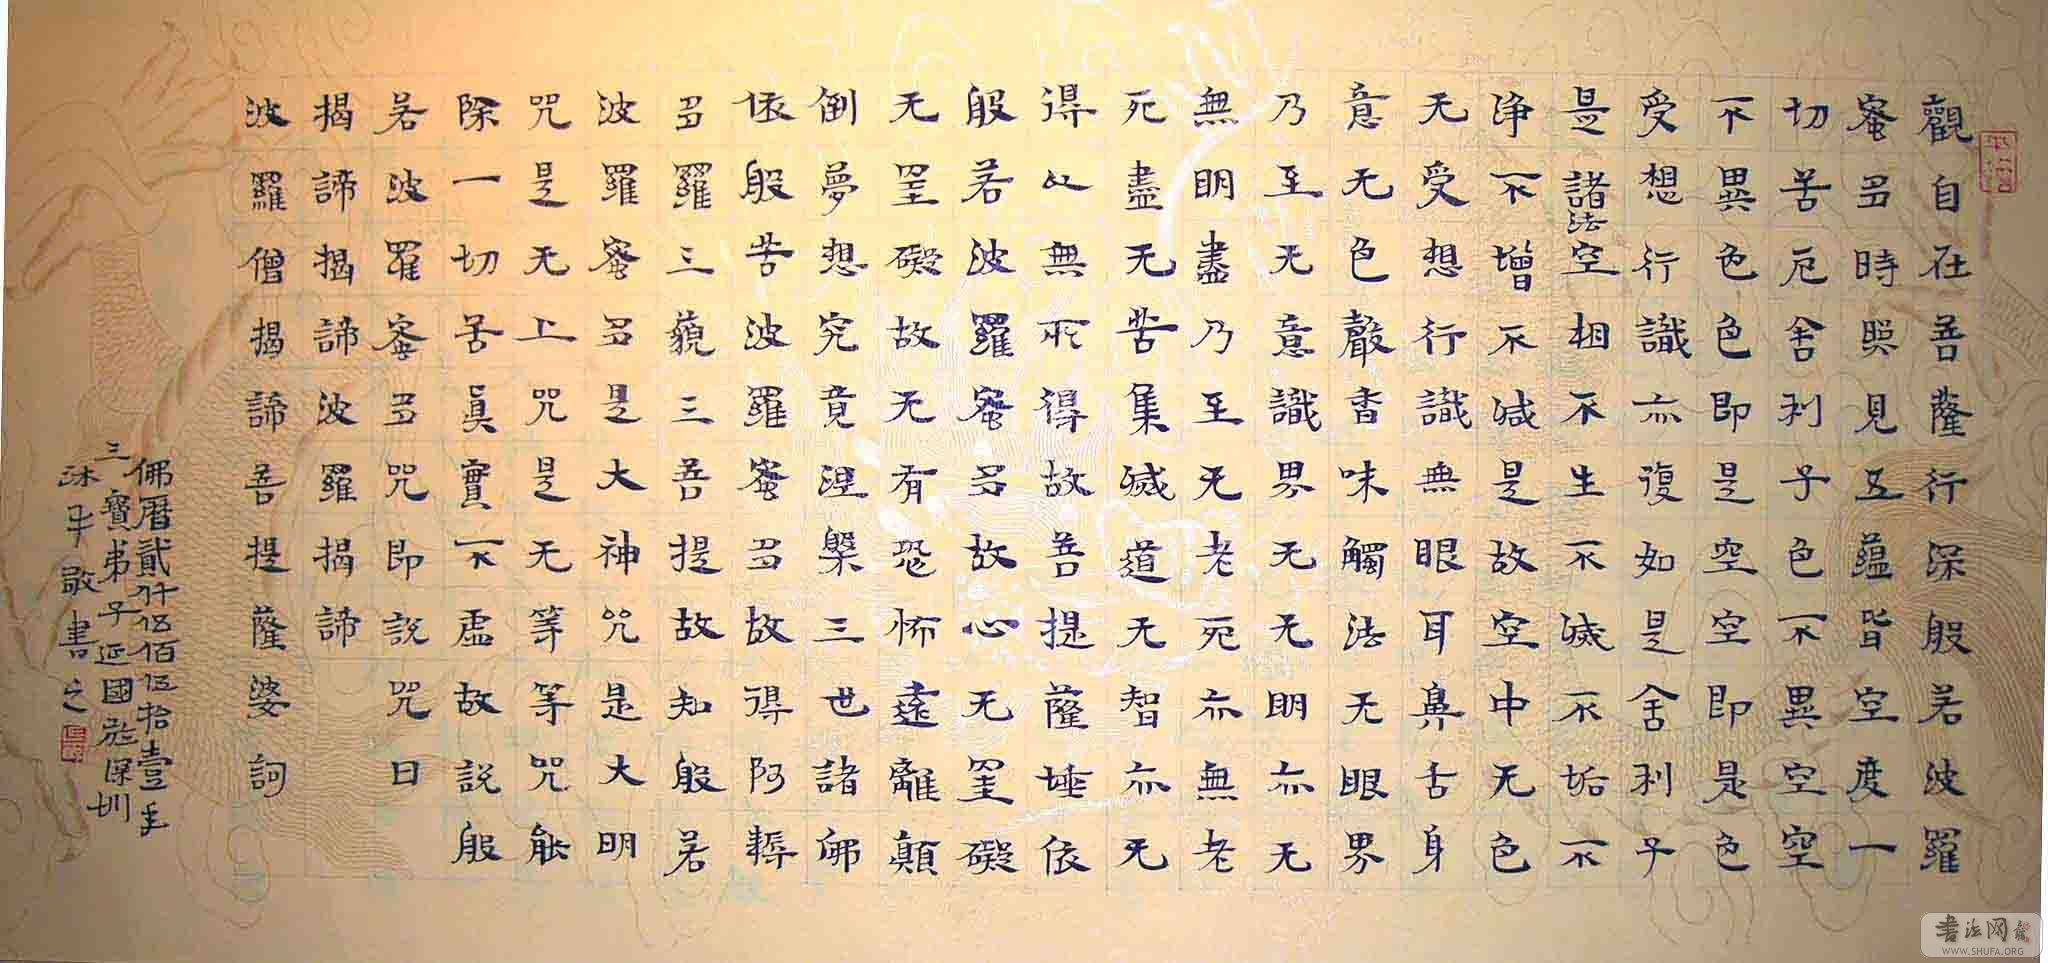 觀自在菩薩行深般若波羅
蜜多時照見五蘊皆空度一
切苦厄舍利子色不異空空
不異色色即是空空即是色
受想行識亦復如是舍利子
是諸法空相不生不滅不垢不
淨不增不減是故空中无色
无受想行識無眼耳鼻舌身
意无色聲香味觸法无眼界
乃至无意識界无无明亦无
無明盡乃至无老死亦無老
死盡无苦集滅道无智亦无
得以無所得故菩提薩埵依
般若波羅蜜多故心无罣礙
无罣礙故无有恐怖遠離顛
倒夢想究竟涅槃三世諸佛
依般若波羅蜜多故得阿耨
多羅三藐三菩提故知般若
波羅蜜多是大神咒是大明
咒是无上咒是无等等咒能
除一切苦真實不虛故說般
若波羅蜜多咒即說咒曰
揭諦揭諦波羅揭諦
波羅僧揭諦菩提薩婆訶
佛曆貳仟伍佰伍拾壹年
三寶弟子延國於深圳
沐手敬書之
书法网
WWW.SHUFA.ORG